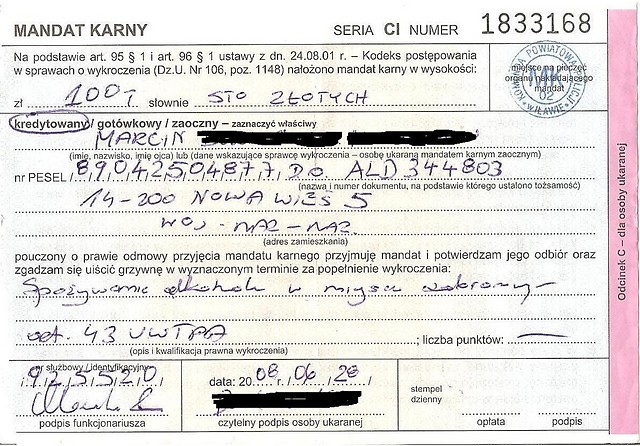 MANDAT KARNY SERIA CI NUMER 1833168
Na podstawie art. 95 § 1 i art. 96 § 1 ustawy z dn. 24.08.01 r. – Kodeks postępowania
w sprawach o wykroczenia (Dz.U. Nr 106, poz. 1148) nałożono mandat karny w wysokości:
miejsce na pieczęć
organu nakładającego
mandat
zł 100 słownie STO ZŁOTYCH
kredytowany / gotówkowy / zaoczny – zaznaczyć właściwy
MARCIN
(imię, nazwisko, imię ojca) lub (dane wskazujące sprawcę wykroczenia – osobę ukaraną mandatem karnym zaocznym)
nr PESEL 89042504877 DO ALD 344803
(nazwa i numer dokumentu, na podstawie którego ustalono tożsamość)
14-200 NOWA WIEŚ 5
WOJ. WAR-MAZ
(adres zamieszkania)
pouczony o prawie odmowy przyjęcia mandatu karnego przyjmuję mandat i potwierdzam jego odbiór oraz
zgadzam się uiścić grzywnę w wyznaczonym terminie za popełnienie wykroczenia:
Spożywanie alkoholu w miejscu zabronionym
art. 43 UWTPA ; liczba punktów: —
(opis i kwalifikacja prawna wykroczenia)
nr służbowy / identyfikacyjny
925520
data: 20 08 r. / 06 / 28
stempel
dzienny
podpis funkcjonariusza czytelny podpis osoby ukaranej opłata podpis
Odcinek C – dla osoby ukaranej